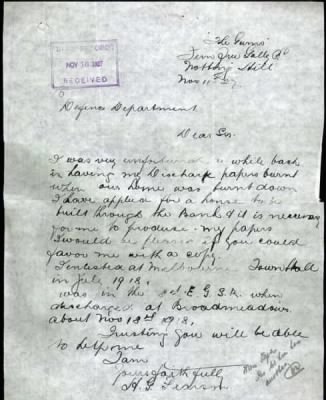 The Gums
Fern Tree Gully Rd
Notting Hill
Nov 11th 27
NOV 16 1927
RECEIVED
Defence Department
Dear Sir
I was very unfortunate a while back
in having my Dischark papers burnt
when our home was burnt down
I have applied for a house to be
built through the Bank & it is necessary
you me to produce my papers
I would be pleased if you could
favor me with a copy.
I enlisted at Melbourne Town Hall
in July 1918,
was in the G.S.R. when
discharged at Broadmeadows
about Nov 18th 1918,
Trusting you will be able
to help me
I am
yours faithfull
A. G.